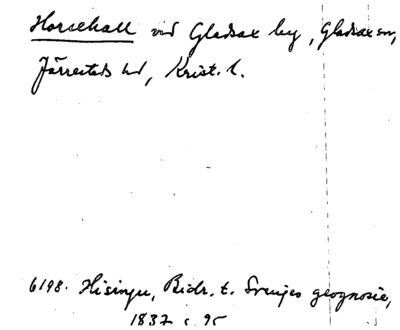 Horsehall vid Gladsax by, Gladsax sn,
Järrestads hd, Krist. l.
6198. Hisinger, Bidr. t. Sveriges geognosie,
1832 s. 95